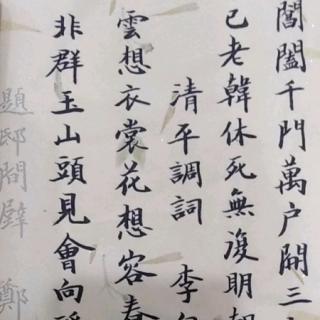 閶闔千門萬户開三
已老韓休死無復明朝
清平調詞 李
雲想衣裳花想容春
非群玉山頭見會向
題邸間壁 鄭